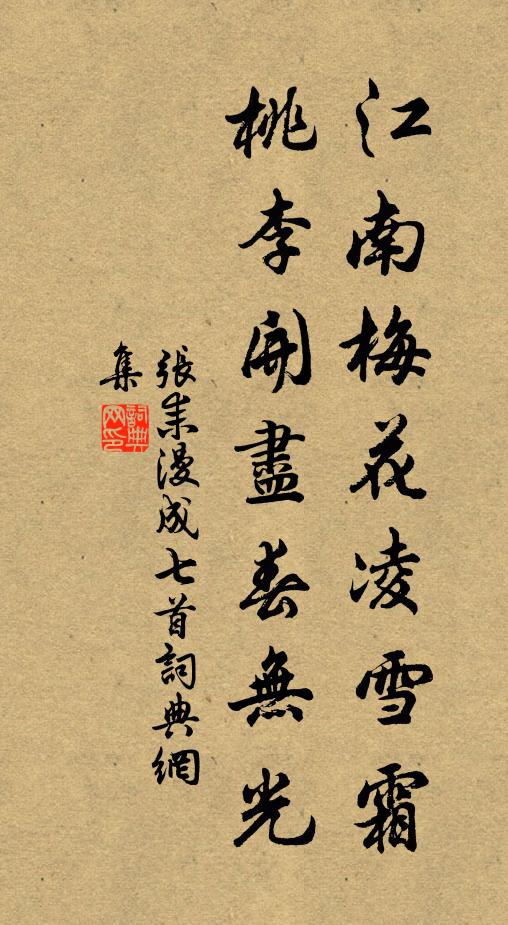 江南梅花凌雪霜
桃李開盡春無光
張耒漫成七首詞典網
集
詞典网印